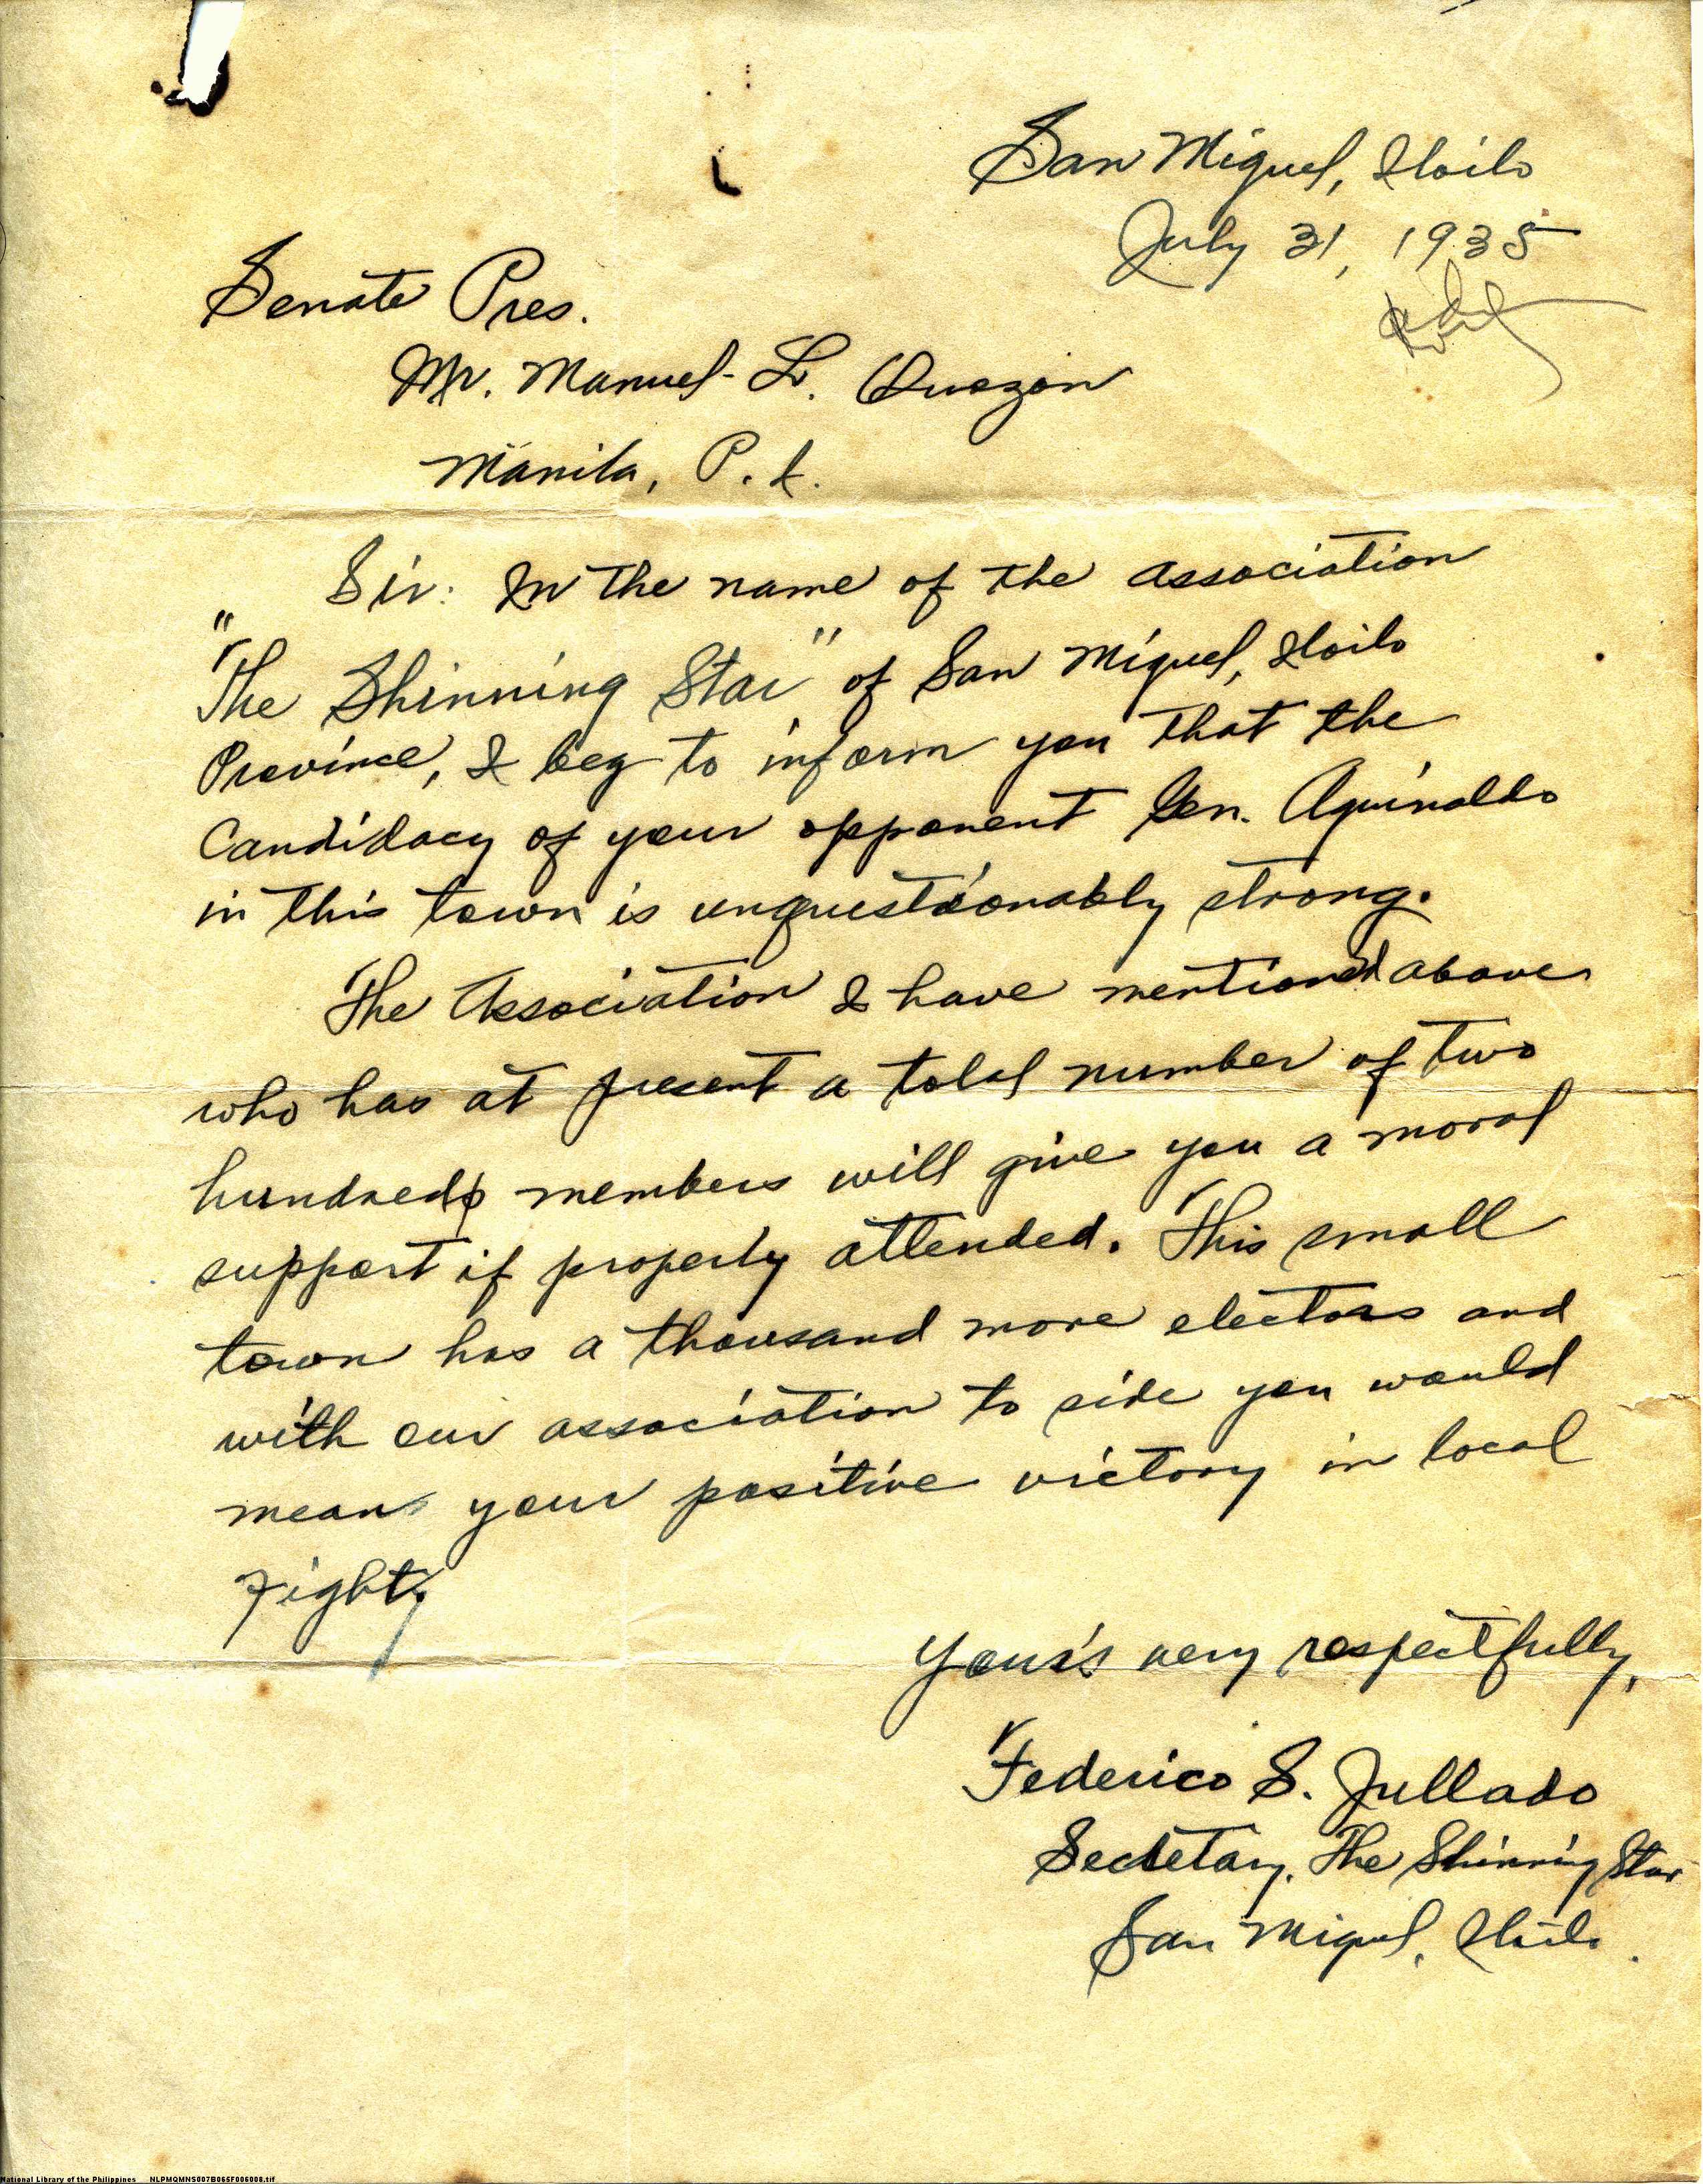 San Miguel, Iloilo
July 31, 1935
Senate Pres.
Mr. Manuel L. Quezon
Manila, P. I.
Sir: In the name of the association
"The Shinning Star" of San Miguel, Iloilo
Province, I beg to inform you that the
Candidacy of your opponent Gen. Aguinaldo
in this town is unquestionably strong.
The Association I have mentioned above
who has at present a total number of two
hundred members will give you a moral
support if properly attended. This small
town has a thousand more electors and
with our association to side you would
means your positive victory in local
Fight.
Your's very respectfully,
Federico S. Jullado
Secretary, The Shinning Star
San Miguel, Iloilo.
National Library of the Philippines NLPMQMNS007B065F006008.tif